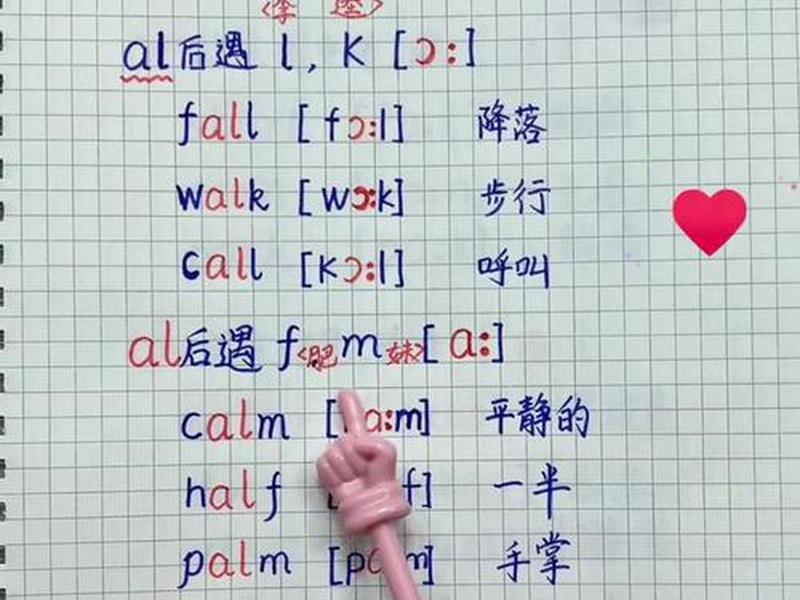 <李 逵>
al后遇 l, k [ɔ:]
fall [fɔ:l] 降落
walk [wɔ:k] 步行
call [kɔ:l] 呼叫
al后遇 f<肥>m<妹>[a:]
calm [ a:m] 平静的
half [ f] 一半
palm [pa m] 手掌